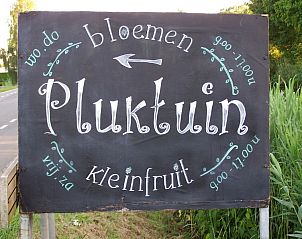 wo do
bloemen
9.00-17.00u
Pluktuin
vrij za
kleinfruit
9.00-17.00u